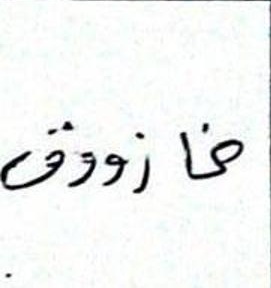 خازووق